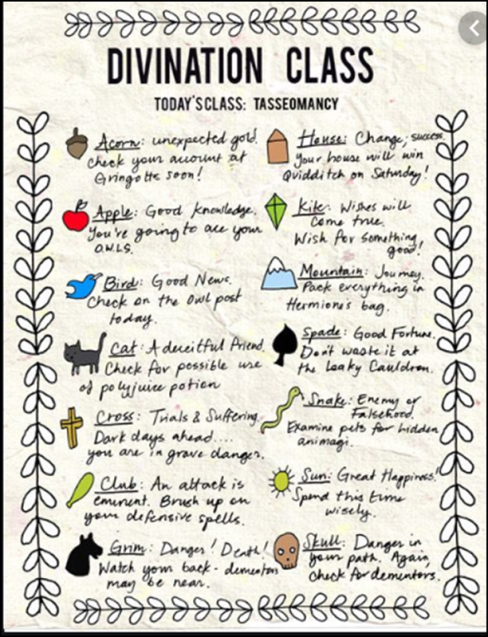 DIVINATION CLASS
TODAY'S CLASS: TASSEOMANCY
Acorn: unexpected gold.
check your account at
Gringotts soon!
Apple: Good knowledge.
You're going to ace your
O.W.L.S.
Bird: Good News.
Check on the owl post
today.
Cat: A deceitful friend.
Check for possible use
of polyjuice potion
Cross: Trials & Suffering.
Dark days ahead....
you are in grave danger.
Club: An attack is
eminent. Brush up on
your defensive spells.
Grim: Danger! Death!
Watch your back - dementors
may be near.
House: Change, success.
Your house will win
Quidditch on Saturday!
Kite: Wishes will
come true.
Wish for something
good!
Mountain: Journey.
Pack everything in
Hermione's bag.
Spade: Good Fortune.
Don't waste it at
the Leaky Cauldron.
Snake: Enemy or
Falsehood.
Examine pets for hidden
animagi.
Sun: Great Happiness!
Spend this time
wisely.
Skull: Danger in
your path. Again,
check for dementors.